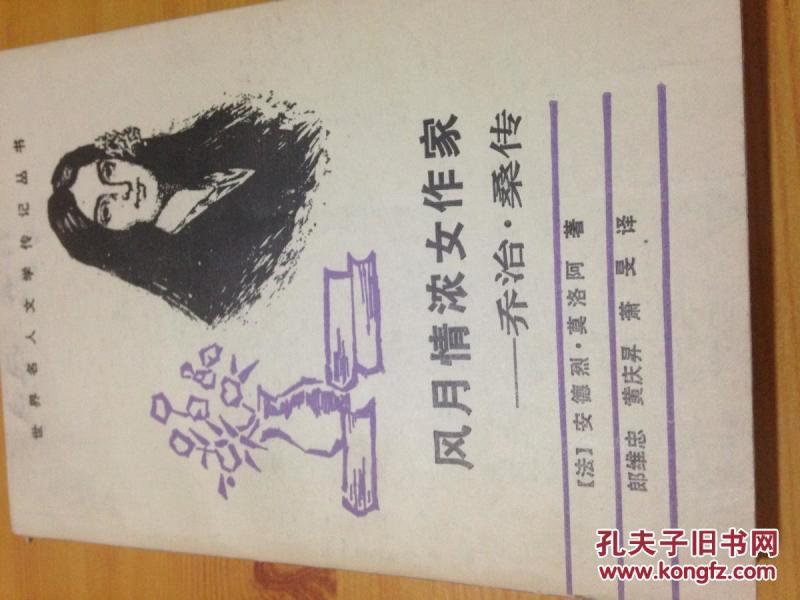 世界名人文学传记丛书
风月情浓女作家
——乔治·桑传
[法]安德烈·莫洛阿 著
郎维忠 黄庆昇 萧旻 译
孔夫子旧书网
www.kongfz.com